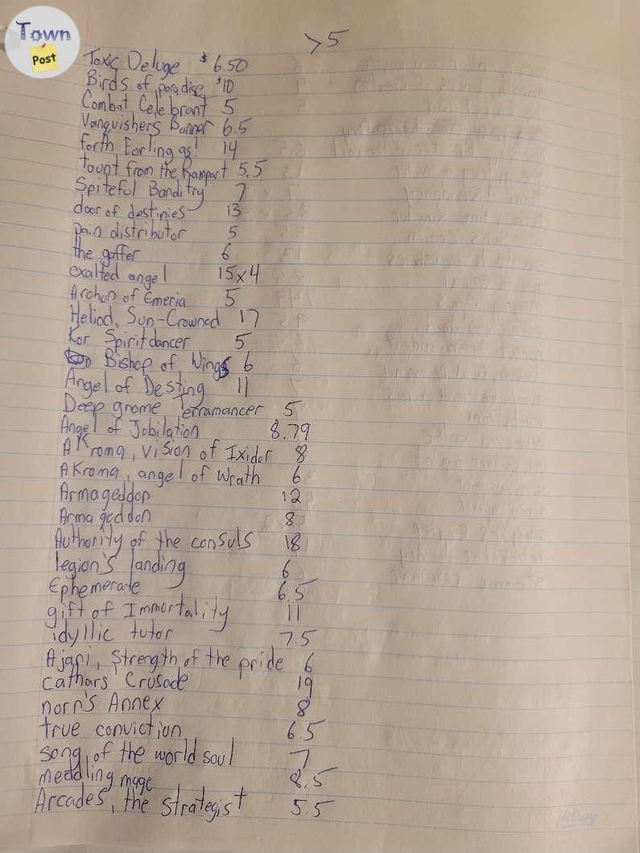 Town
Post
>5
Toxic Deluge $6.50
Birds of paradise $10
Combat Celebrant 5
Vanquishers Banner 6.5
forth Eorlingas! 14
taunt from the Rampart 5.5
Spiteful Banditry 7
door of destinies 13
pain distributor 5
the gaffer 6
exalted angel 15x4
Archon of Emeria 5
Heliod, Sun-Crowned 17
Kor Spiritdancer 5
Bishop of Wings 6
Angel of Destiny 11
Deep gnome Terramancer 5
Angel of Jobilation 8.79
AKroma, vision of Ixidor 8
AKroma, angel of Wrath 6
Armageddon 12
Armageddon 8
Authority of the consuls 18
legion's landing 6
Ephemerate 6.5
gift of Immortality 11
idyllic tutor 7.5
Ajani, Strength of the pride 6
cathars' Crusade 19
norn's Annex 8
true conviction 6.5
song of the world soul 7
meddling mage 8.5
Arcades, the Strategist 5.5